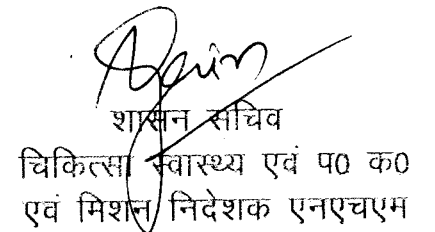 शासन सचिव
चिकित्सा स्वास्थ्य एवं प0 क0
एवं मिशन निदेशक एनएचएम